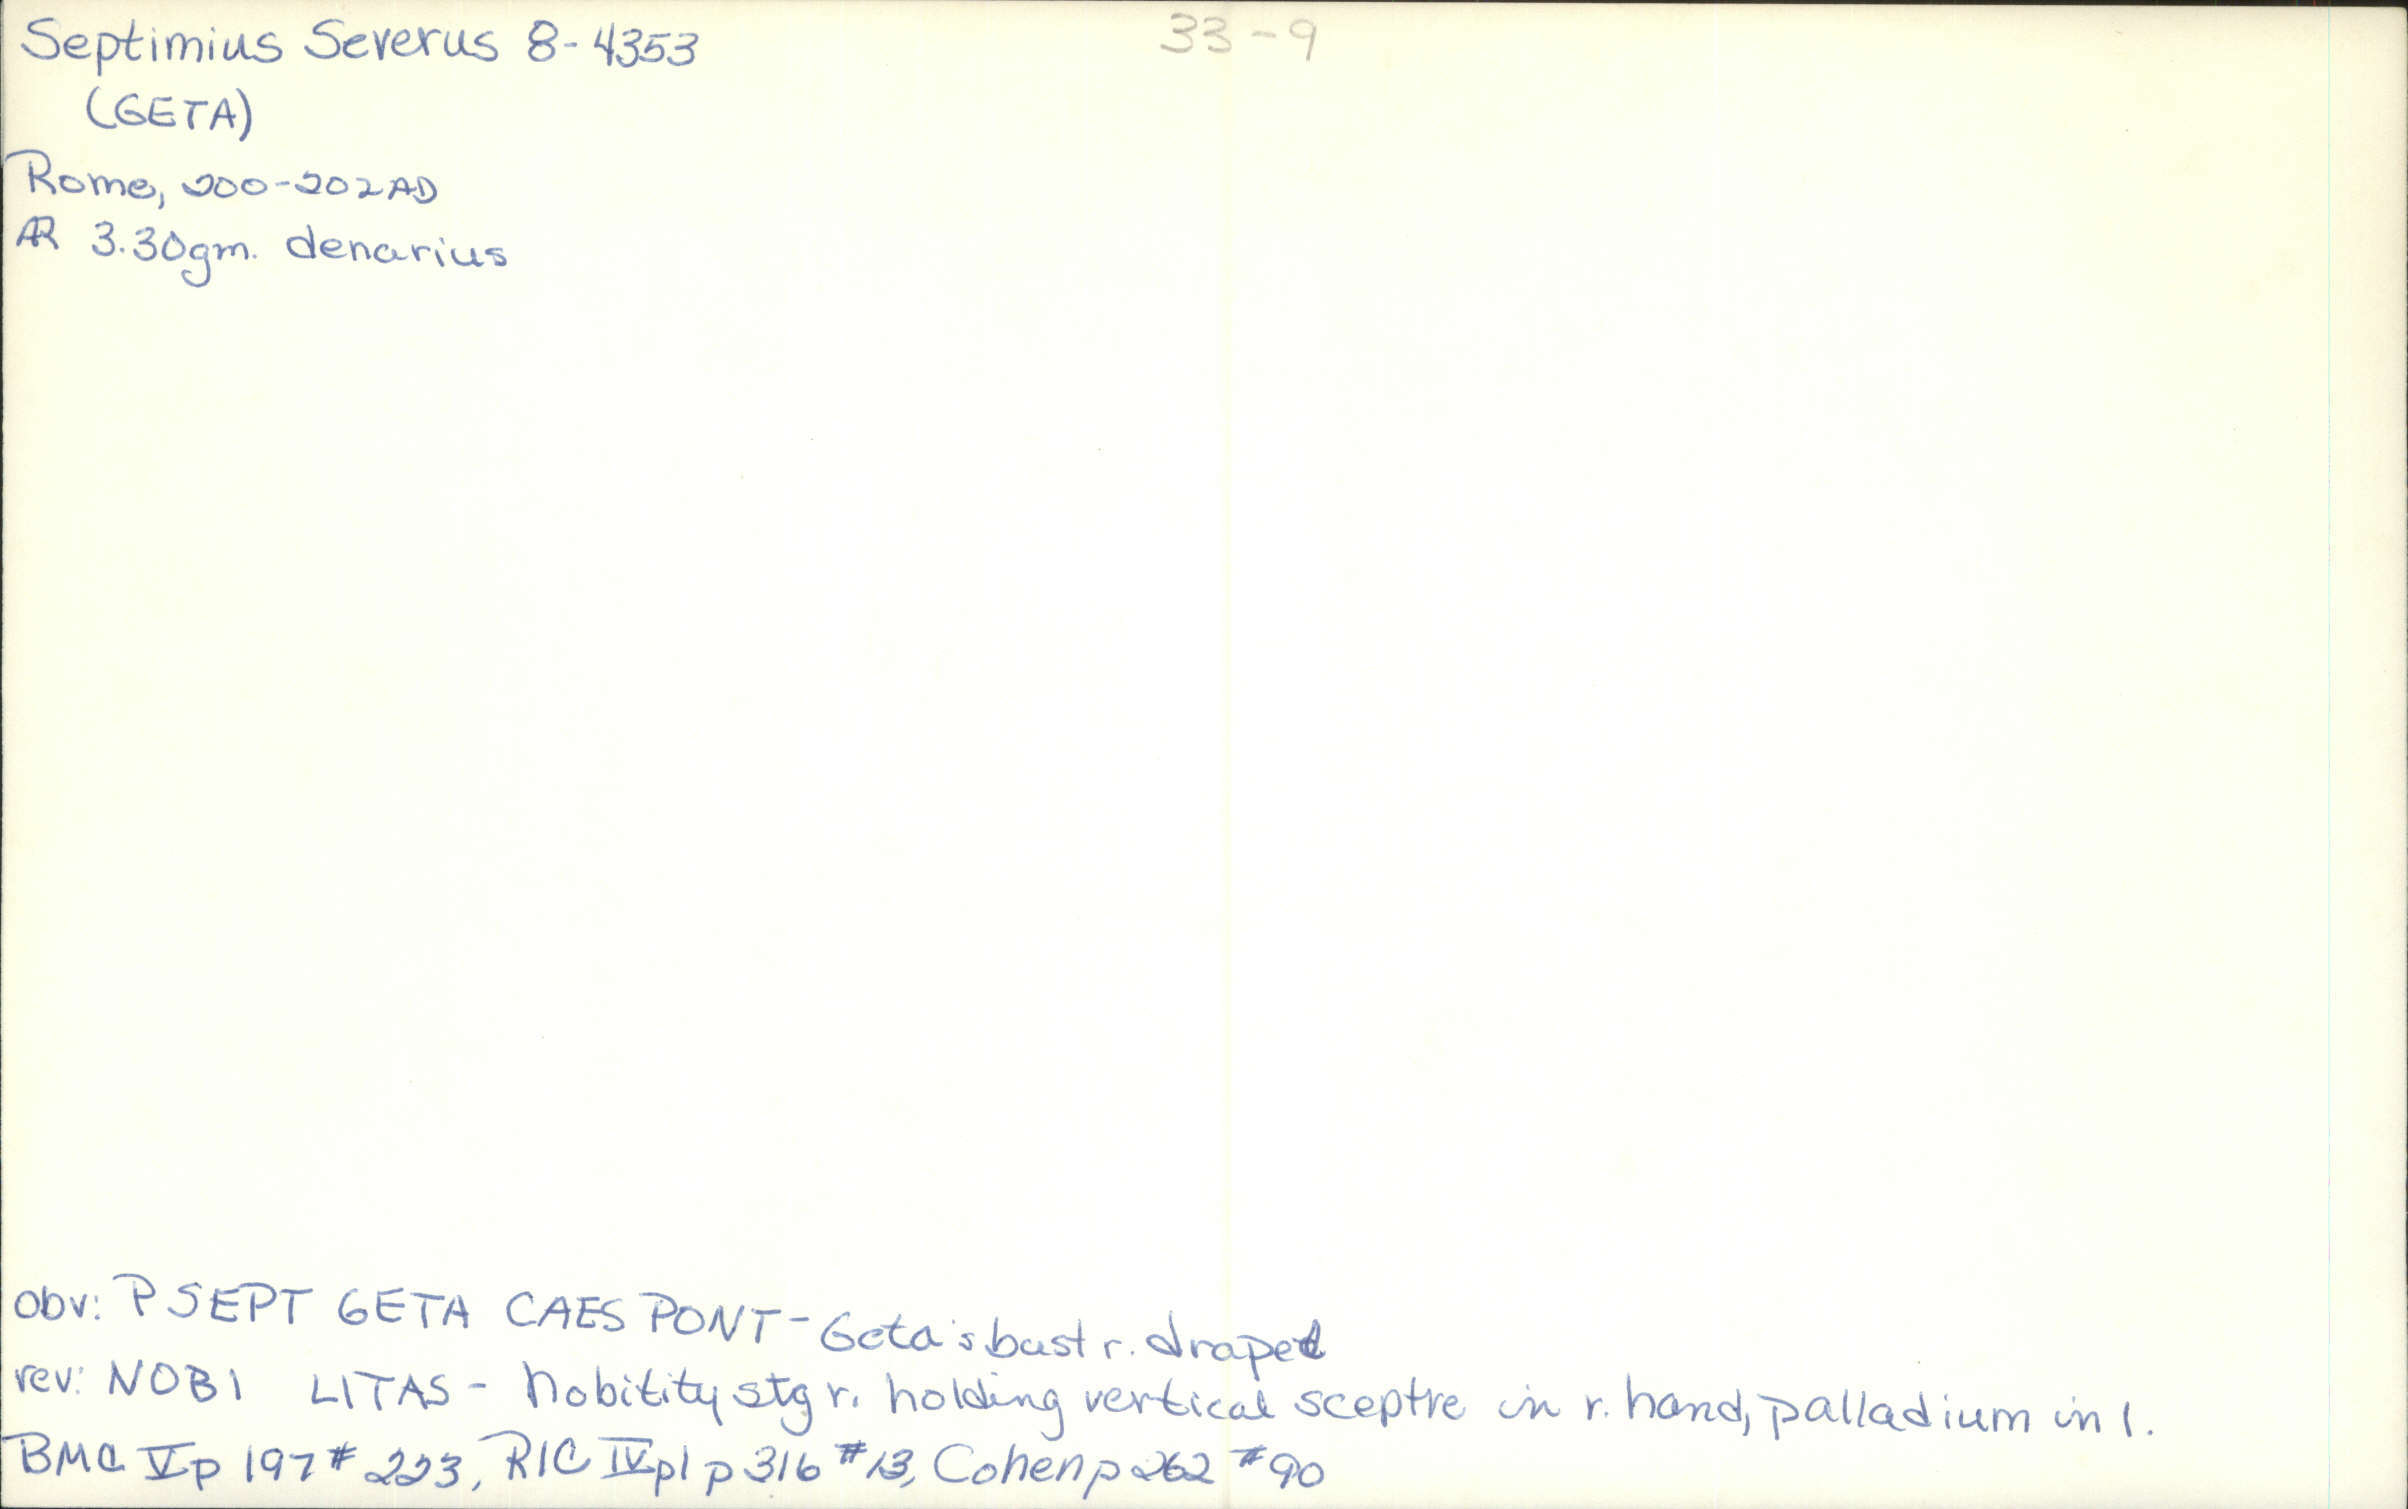 Septimius Severus 8-4353
33-9
(GETA)
Rome, 200-202 AD
AR 3.30gm. denarius
obv: P SEPT GETA CAES PONT - Geta's bust r. draped
rev: NOBI LITAS - Nobitity stg r. holding vertical sceptre in r. hand, palladium in l.
BMC V p 197 # 223, RIC IV p1 p 316 # 13, Cohen p 262 # 90